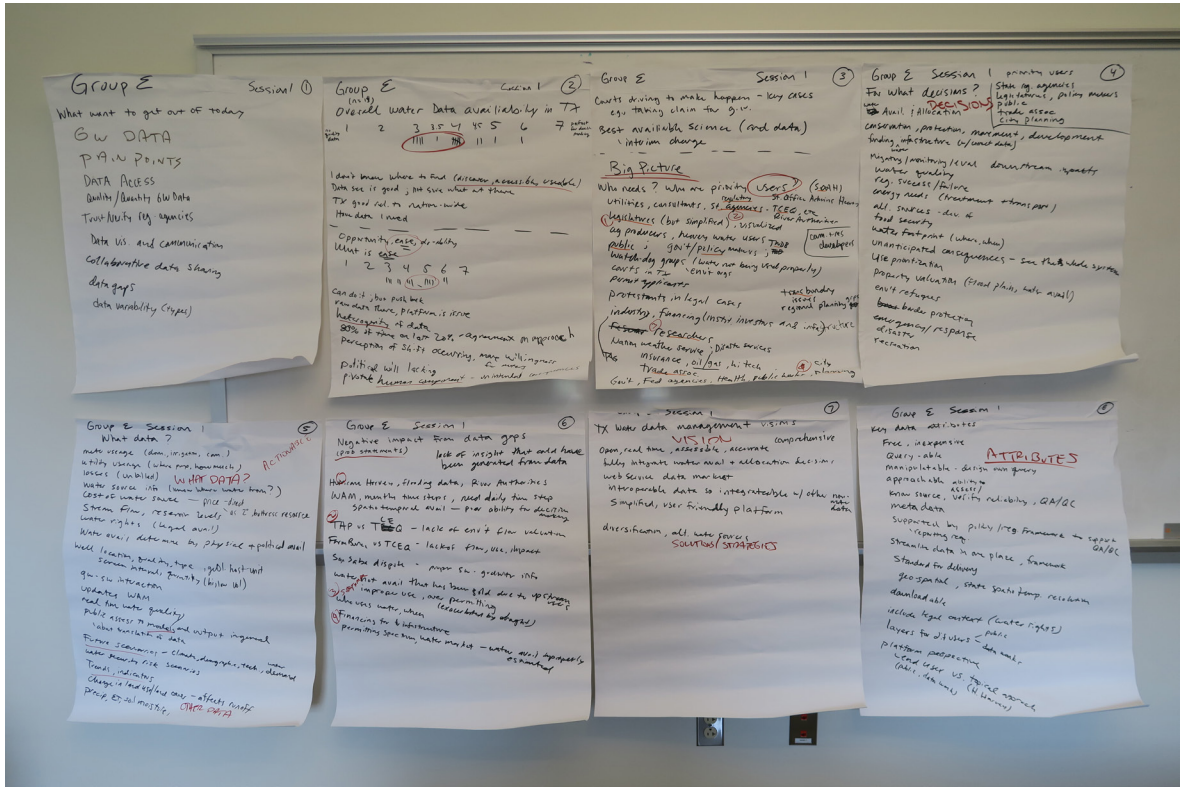 Group E Session 1 1
What want to get out of today
GW DATA
PAIN POINTS
DATA ACCESS
Quality/Quantity GW Data
Trust/Unify reg. agencies
Data vis. and communication
collaborative data sharing
data gaps
data variability (types)
Group E Session 1 2
Overall water Data availability in TX
1 2 3 3.5 4 4.5 5 6 7
I don't know where to find (discover, accessible, useable)
Data see is good, not sure what out there
TX good rel. to nation-wide
How data used
Opportunity, ease, do-ability
What is ease
1 2 3 4 5 6 7
Can do it, but push back
raw data there, platform is issue
heterogeneity of data
80% of time on last 20% - agreement on approach
perception of shift occurring, more willingness
political will lacking
human component - unintended consequences
Group E Session 1 3
Courts driving to make happen - key cases
eg. taking claim for g.w.
Best available science (and data)
in time change
Big Picture
Who needs? Who are priority users? (SOAH)
Utilities, consultants, St. agencies - TCEQ, etc
regulatory St Office Admins Hearing
River Authorities
1 legislatures (but simplified) 2 visualized
ag producers, heavy water users TWDB
developers
public; gov't/policy makers;
Watch-dog groups (water not being used properly)
courts in TX envir orgs
permit applicants
transboundary
issues
protestants in legal cases
regional planning
industry, financing (instit. investors and infra)
researchers
weather service, Disaster services
insurance, oil/gas, hi tech
trade assoc
4 city planning
Gov't, Fed agencies, Health, public
Group E Session 1 priority users 4
For what decisions?
State reg. agencies
legislatures, policy makers
public
trade assoc
city planning
DECISIONS
Avail. Allocation
conservation, protection, movement, development
funding infrastructure (w/correct data)
downstream impacts
water quality
reg. success/failure
energy needs (treatment + transport)
alt. sources - dev. of
food security
water footprint (where, when)
unanticipated consequences - see the whole system
Use prioritization
property valuation (flood plain, water avail)
env't refugees
border protection
emergency/response
disaster
recreation
Group E Session 1 5
What data?
ACTIONABLE
water usage (dom, irrigation, com.)
utility usage (where from, how much)
losses (unbilled) WHAT DATA?
water source info (know where water from?)
Cost of water source - price
Stream flow, reservoir levels
water rights (legal avail)
Water avail. determine by physical + political avail
Well location, quality, type, geol. host-unit
screen intervals, quantity (below wl)
gw-sw interaction
updated WAM
real time water quality
public access to models and output in general
translation of data
Future scenarios - climate, demographic, tech, water demand
water security risk scenarios
Trends, indicators
Change in land use/land cover - affects runoff
precip, ET, soil moisture, OTHER DATA
Group E Session 1 6
Negative impact from data gaps
(prob statements)
lack of insight that could have
been generated from data
Hurricane Harvey, flooding data, River Authorities
WAM, monthly time steps, need daily time step
spatiotemporal avail - poor ability for decision
making
2 TAP vs TCEQ - lack of env't flow valuation
vs TCEQ - lack of flow, use, impact
San Saba dispute - proper sw-gw data info
3 water not avail that has been sold due to upstream uses
improper use, over permitting
(exacerbated by drought)
who uses water, when
4 Financing for infrastructure
permitting spectrum, water market - water avail improperly
estimated
Session 1 7
TX water data management visions
VISION
comprehensive
Open, real time, accessible, accurate
fully integrate water avail + allocation decisions
web service data market
interoperable data so integrateable w/ other non-water data
Simplified, user friendly platform
diversification, alt. water sources
SOLUTIONS/STRATEGIES
Group E Session 1 8
Key data attributes
Free, inexpensive
Query-able
ATTRIBUTES
manipulatable - design own query
approachable ability to
assess/
know source, verify reliability, QA/QC
meta data
Supported by policy/reg. framework to support
- reporting req. QA/QC
Streamline data in one place, framework
Standard for delivery
geospatial, state spatio temp. resolution
downloadable
include legal context (water rights)
layers for dif users public
data wonks
platform perspective
- end user vs. topical approach
(public, data wonk)